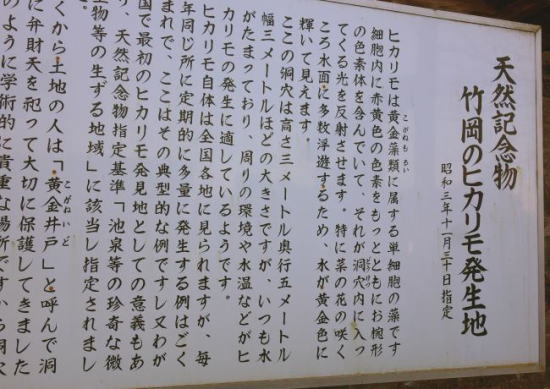 天然記念物
竹岡のヒカリモ発生地
昭和三年十一月三十日指定
ヒカリモは黄金藻類に属する単細胞の藻です
こがねもるい
細胞内に赤黄色の色素をもっとともにお椀形
の色素体を含んでいて、それが洞穴内に入っ
てくる光を反射させます。特に菜の花の咲く
ころ水面に多数浮遊するため、水が黄金色に
輝いて見えます。
ここの洞穴は高さ三メートル奥行五メートル
幅三メートルほどの大きさですが、いつも水
がたまっており、周りの環境や水温などがヒ
カリモの発生に適しているようです。
ヒカリモ自体は全国各地に見られますが、毎
年同じ所に定期的に多量に発生する例はごく
まれで、ここはその典型的な例ですし又わが
国で最初のヒカリモ発見地としての意義もあ
り、天然記念物指定基準「池泉等の珍奇な微
生物等の生ずる地域」に該当し指定されまし
くから土地の人は「黄金井戸」と呼んで洞
こがねいど
に弁財天を祀って大切に保護してきました
のように学術的に貴重な場所ですから洞穴